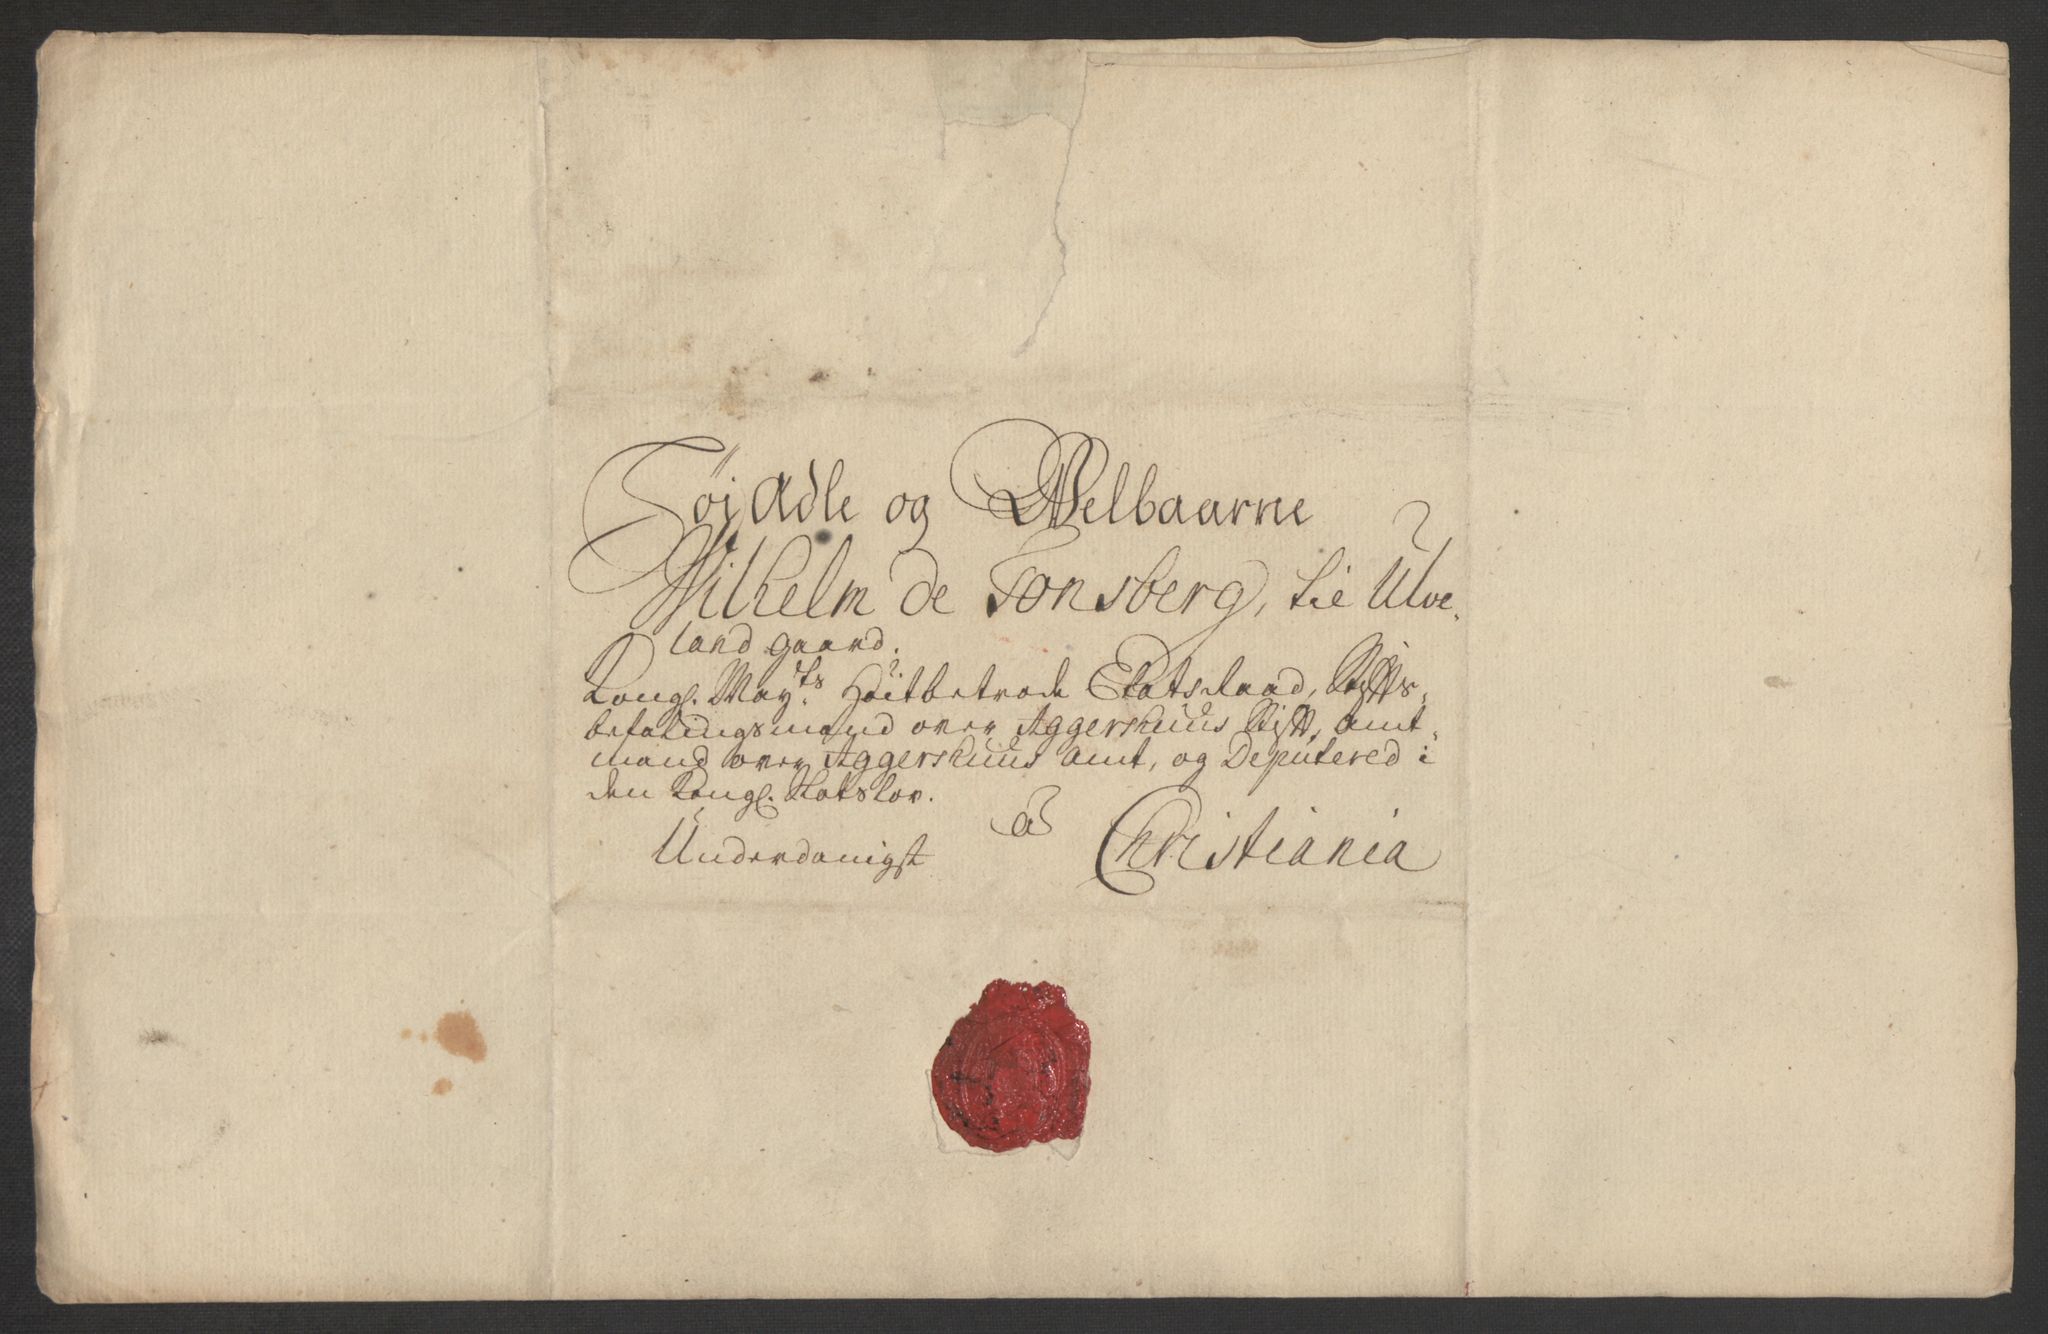 Høj Ædle og Welbaarne
Wilhelm de Tonsberg, til Ulve-
land gaard.
Kongl. Mayts. Høitbetrode Etatsraad, Stifts-
befalingsmand over Aggershuus Stift, Amt-
mand over Aggershuus Amt, og Deputered i
den Kongl. Slotslov.
Underdanigst
a Christiania